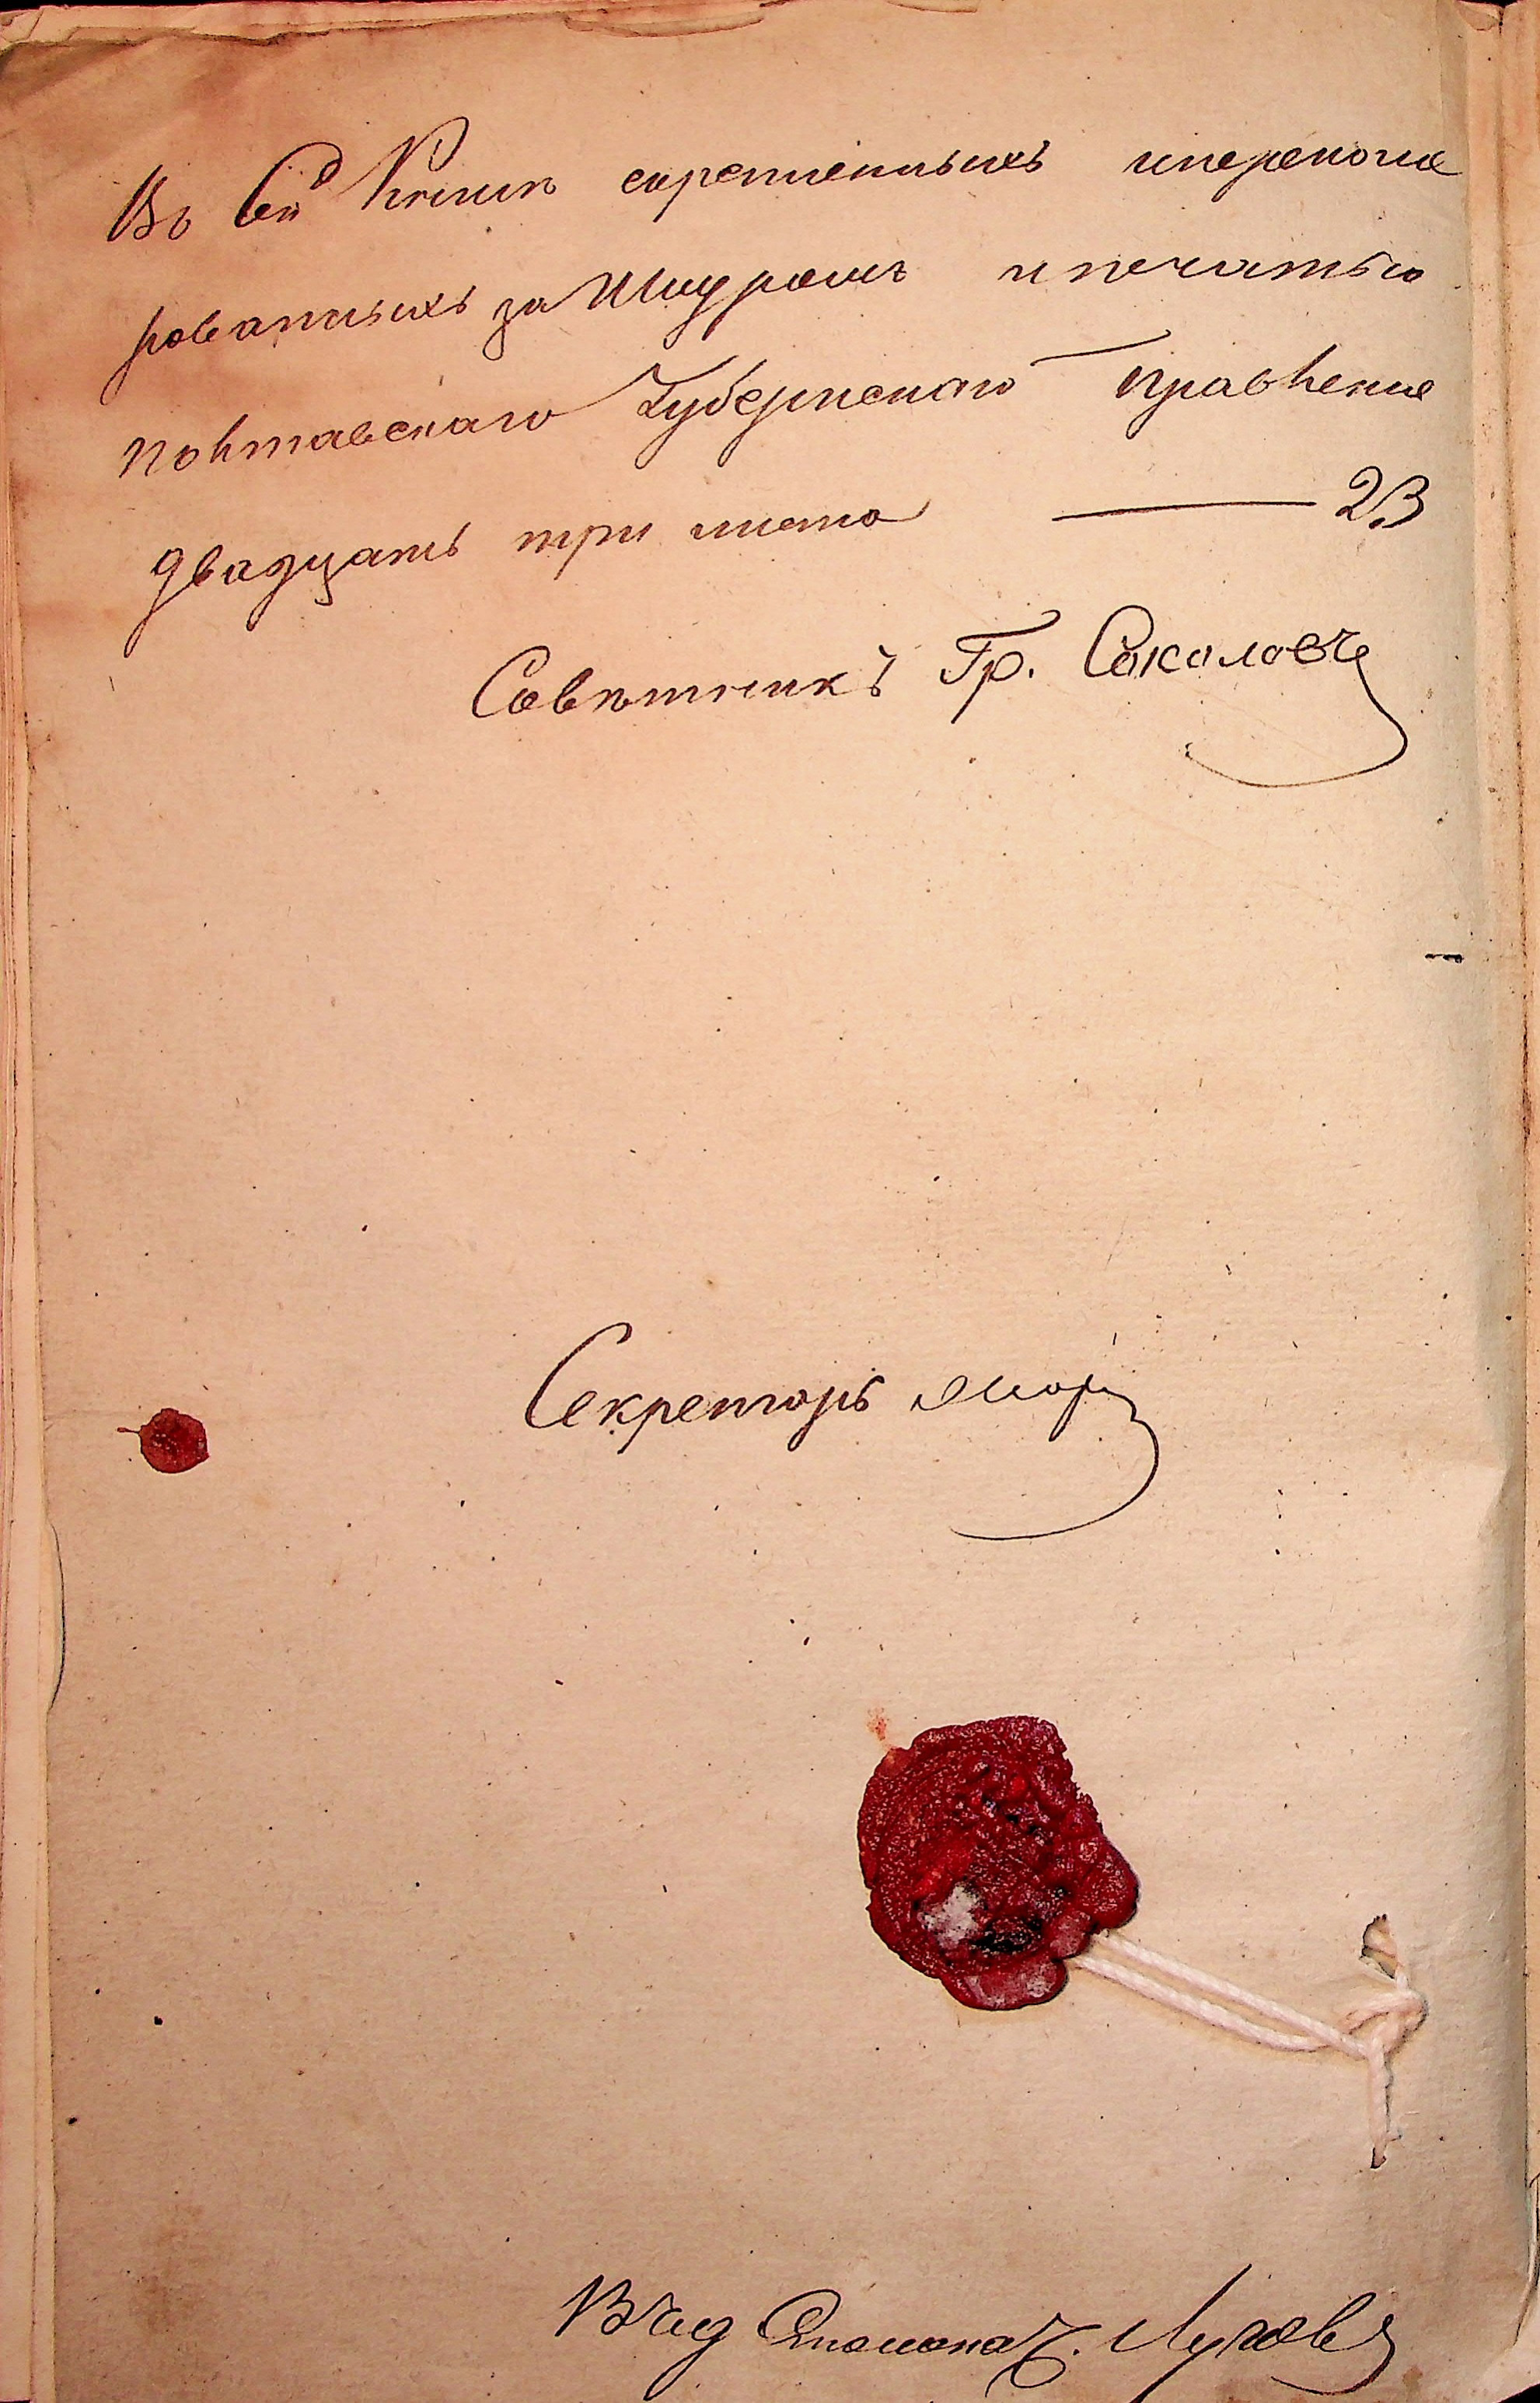 Въ сей Книгѣ скрепленныхъ ипереноме
рованныхъ за Шнуромъ ипечатью
Полтавскаго Губернскаго Правления
двадцать три листа — 23
Совѣтникъ Гр. Соколовъ
Секретарь